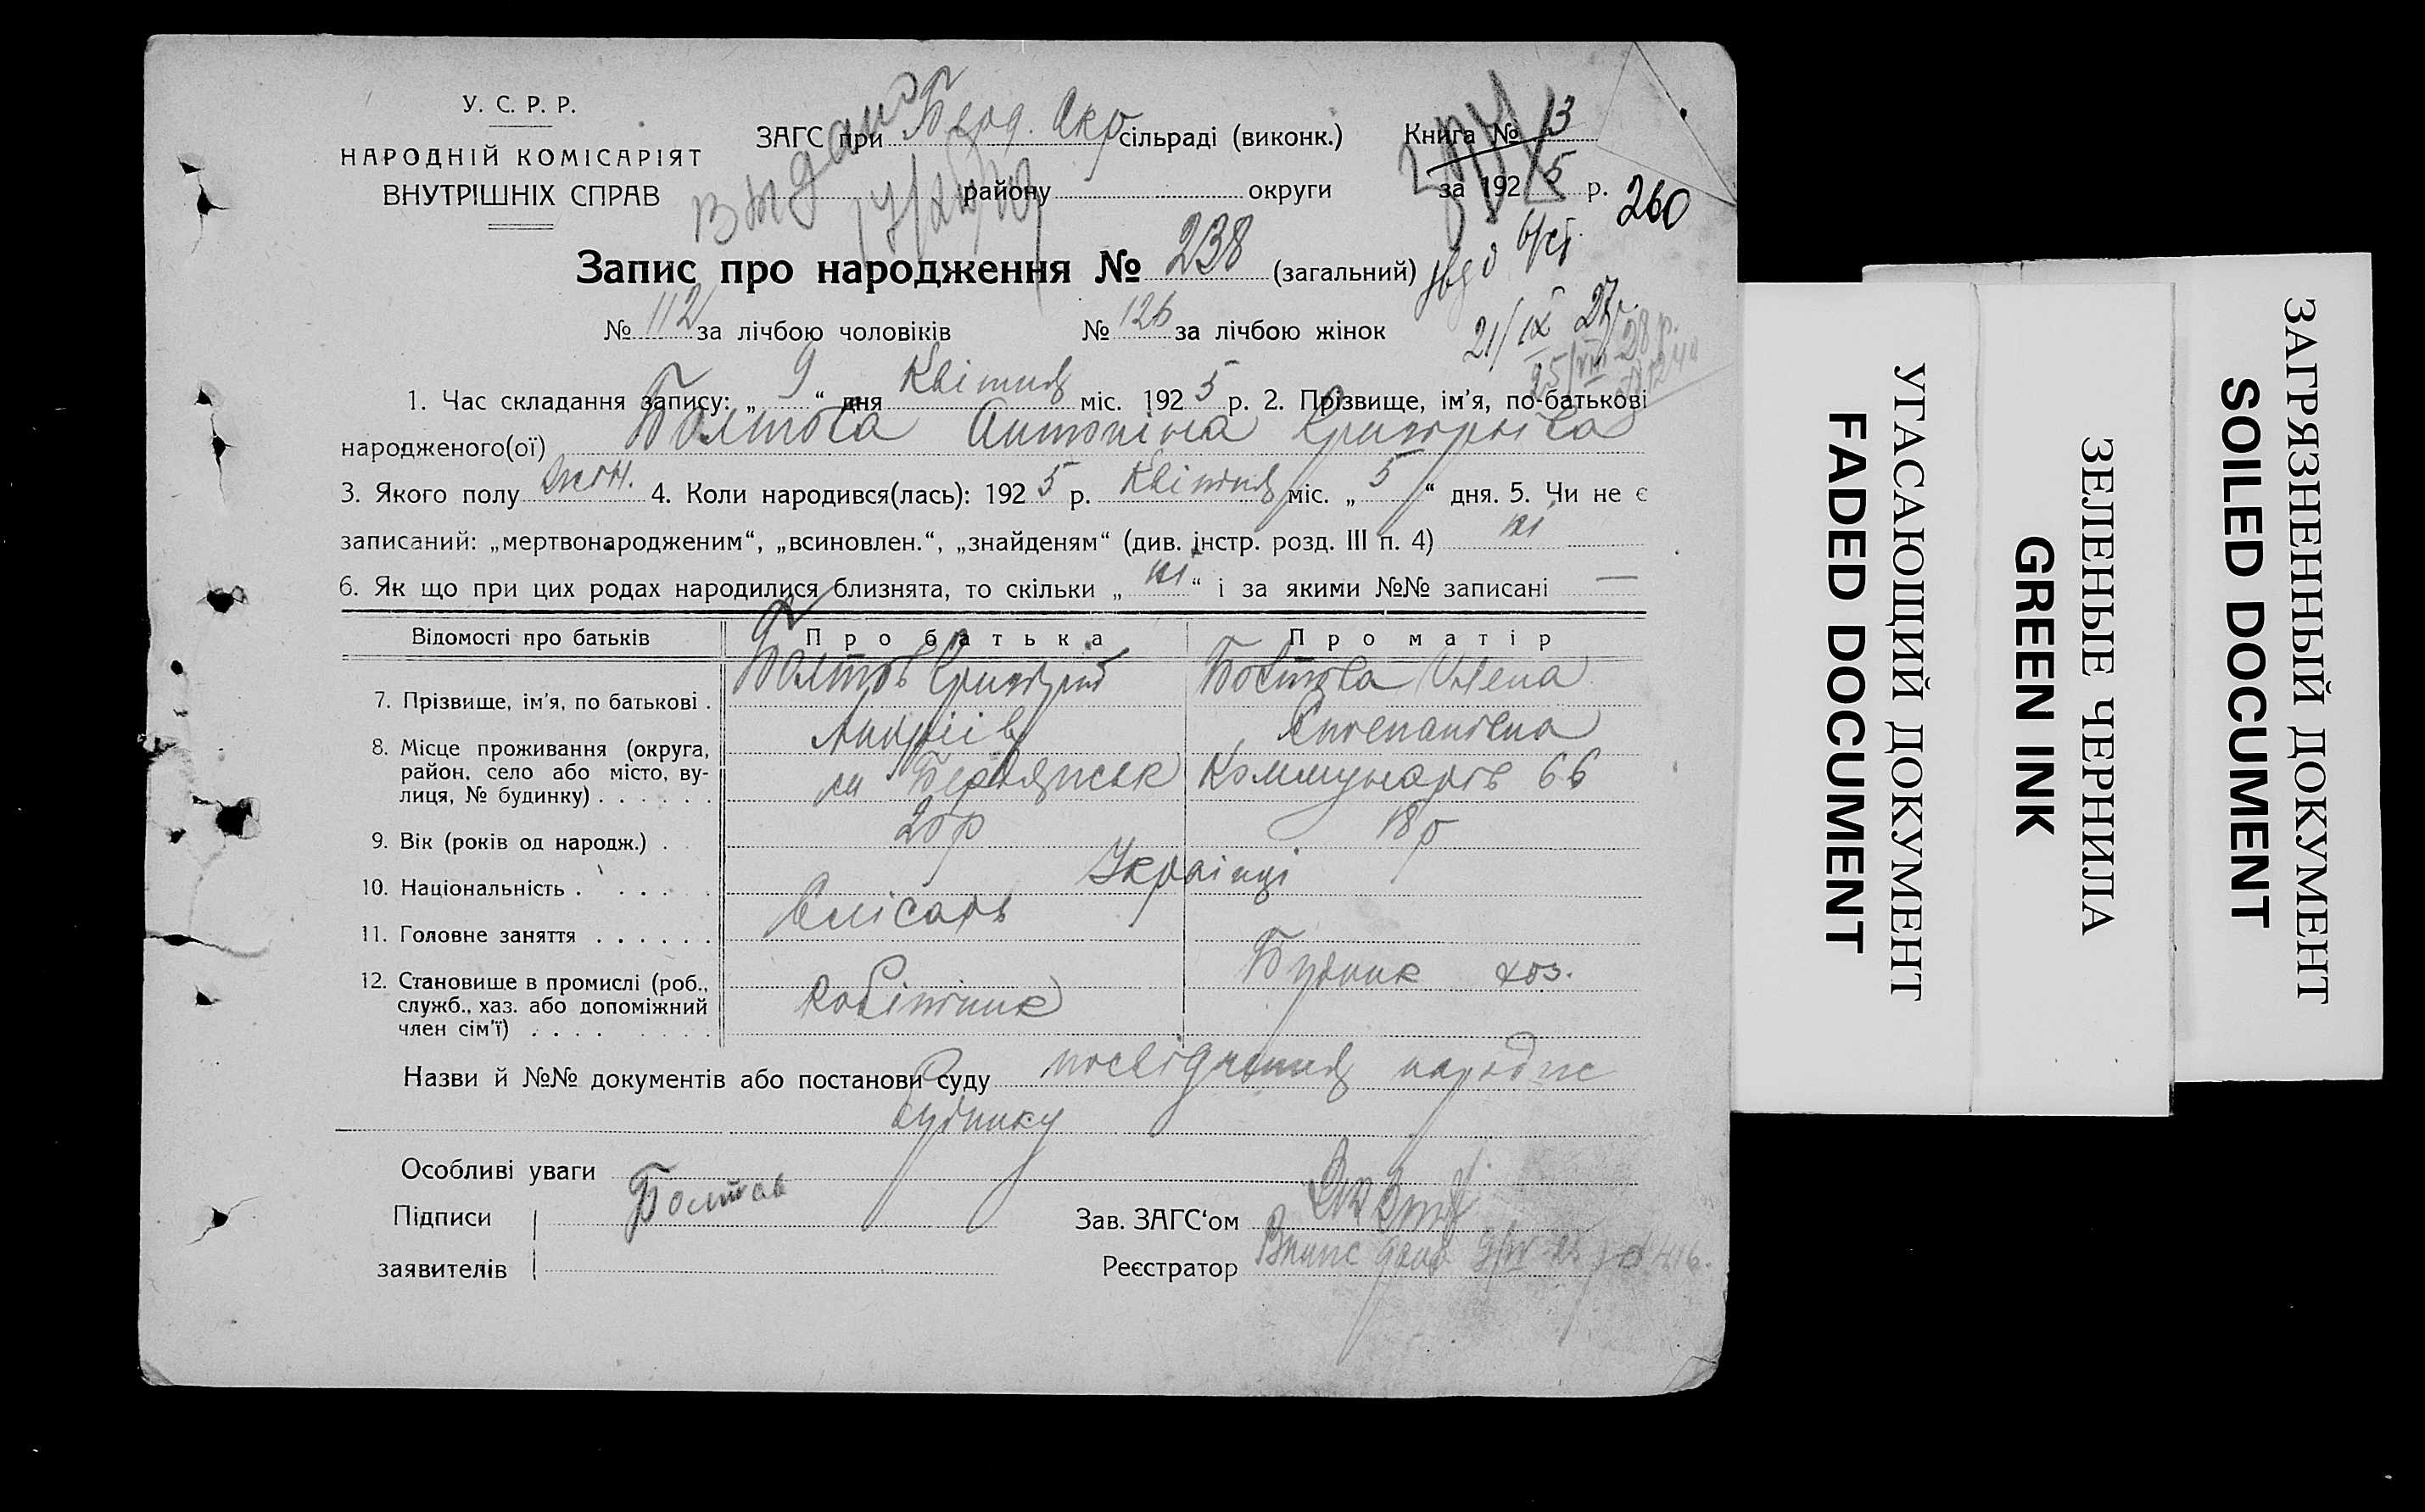 У. С. Р. Р.
НАРОДНІЙ КОМІСАРІЯТ
ВНУТРІШНІХ СПРАВ
ЗАГС при Берд. Окр сільраді (виконк.)
району округи
Книга № 13
за 1925 р. 260
Запис про народження № 238 (загальний)
№ 112 за лічбою чоловіків № 126 за лічбою жінок
21/IX 27р.
1. Час складання запису: „ 9 “ дня Квітня міс. 1925 р. 2. Прізвище, ім’я, по-батькові
народженого(ої) Болтова Антоніна Григорьева
3. Якого полу жен. 4. Коли народився(лась): 1925 р. Квітня міс. „ 5 “ дня. 5. Чи не є
записаний: „мертвонародженим“, „всиновлен.“, „знайденям“ (див. інстр. розд. III п. 4) ні
6. Як що при цих родах народилися близнята, то скільки „ ні “ і за якими №№ записані —
Відомості про батьків Про батька Про матір
7. Прізвище, ім’я, по батькові . Болтов Григорій Андріів Болтова Олена Степановна
8. Місце проживання (округа,
район, село або місто, ву-
лиця, № будинку) . . . . . . м Бердянськ Коммунарів 66
9. Вік (років од народж.) . 20 р 18 р
10. Національність . . . . . Українці
11. Головне заняття . . . . . . Слісарь
12. Становище в промислі (роб.,
служб., хаз. або допоміжний
член сім’ї) . . . . Робітник Будинк хоз.
Назви й №№ документів або постанови суду посвідчення народж
будинку
Особливі уваги
Підписи Болтов Зав. ЗАГС‘ом
заявителів Реєстратор
ЗАГРЯЗНЕННЫЙ ДОКУМЕНТ
SOILED DOCUMENT
ЗЕЛЕНЫЕ ЧЕРНИЛА
GREEN INK
УГАСАЮЩИЙ ДОКУМЕНТ
FADED DOCUMENT